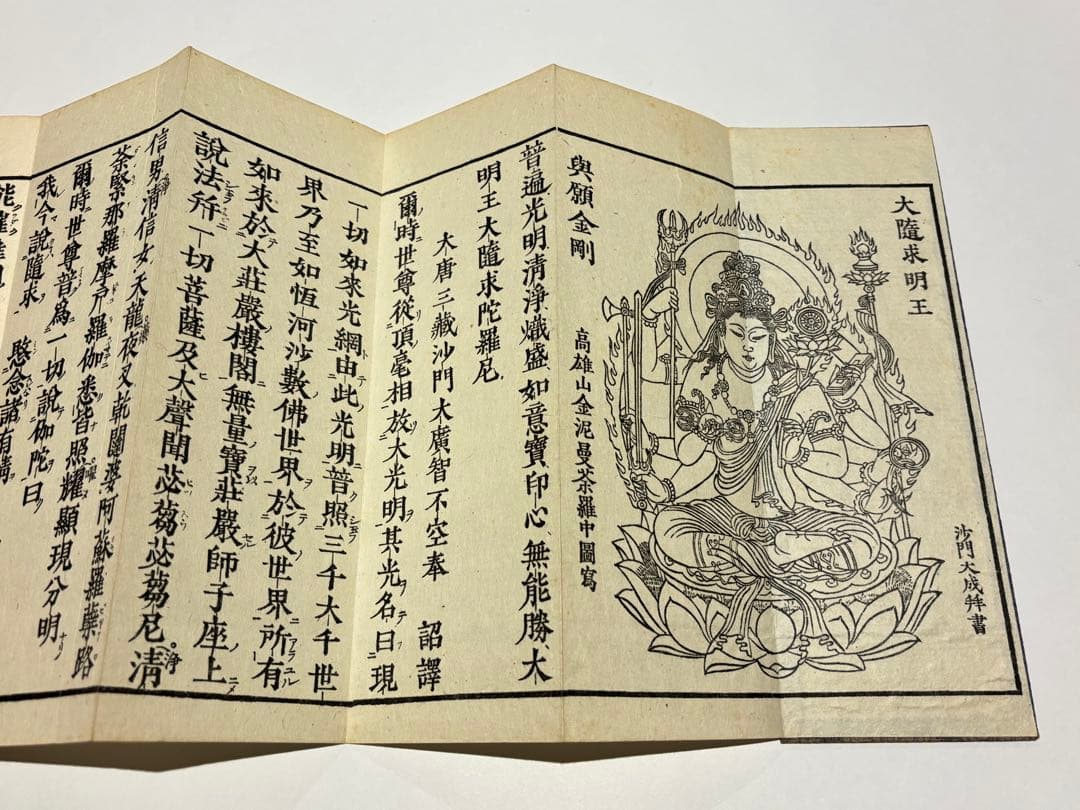 大隨求明王
沙門大成拜書
與願金剛
高雄山金泥曼荼羅中圖寫
普遍光明清淨熾盛如意寶印心無能勝大
明王大隨求陀羅尼
大唐三藏沙門大廣智不空奉 詔譯
爾時世尊從頂毫相放大光明其光名曰現
一切如來光網由此光明普照三千大千世
界乃至如恆河沙數佛世界於彼世界所有
如來於大莊嚴樓閣無量寶莊嚴師子座上
說法幷一切菩薩及大聲聞苾蒭苾蒭尼清
信男清信女天龍夜叉乾闥婆阿蘇羅蘖路
荼緊那羅摩戶羅伽悉皆照耀顯現分明
爾時世尊普爲一切說伽陀曰
我今說隨求 愍念諸有情